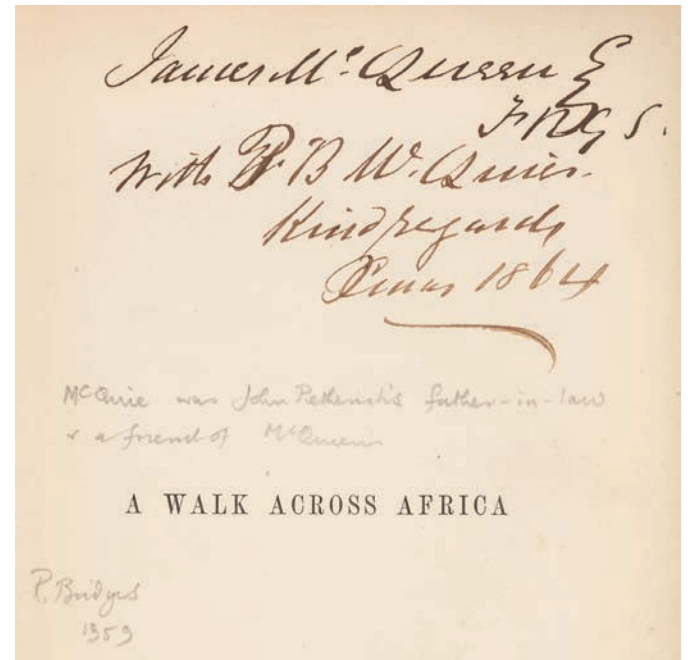 James Mc.Queen E
FRGS.
With P. B McQuies.
Kind regards
Xmas 1864
McQuie was John Petherick's father-in-law
& a friend of McQueen's
A WALK ACROSS AFRICA
R. Bridges
1959